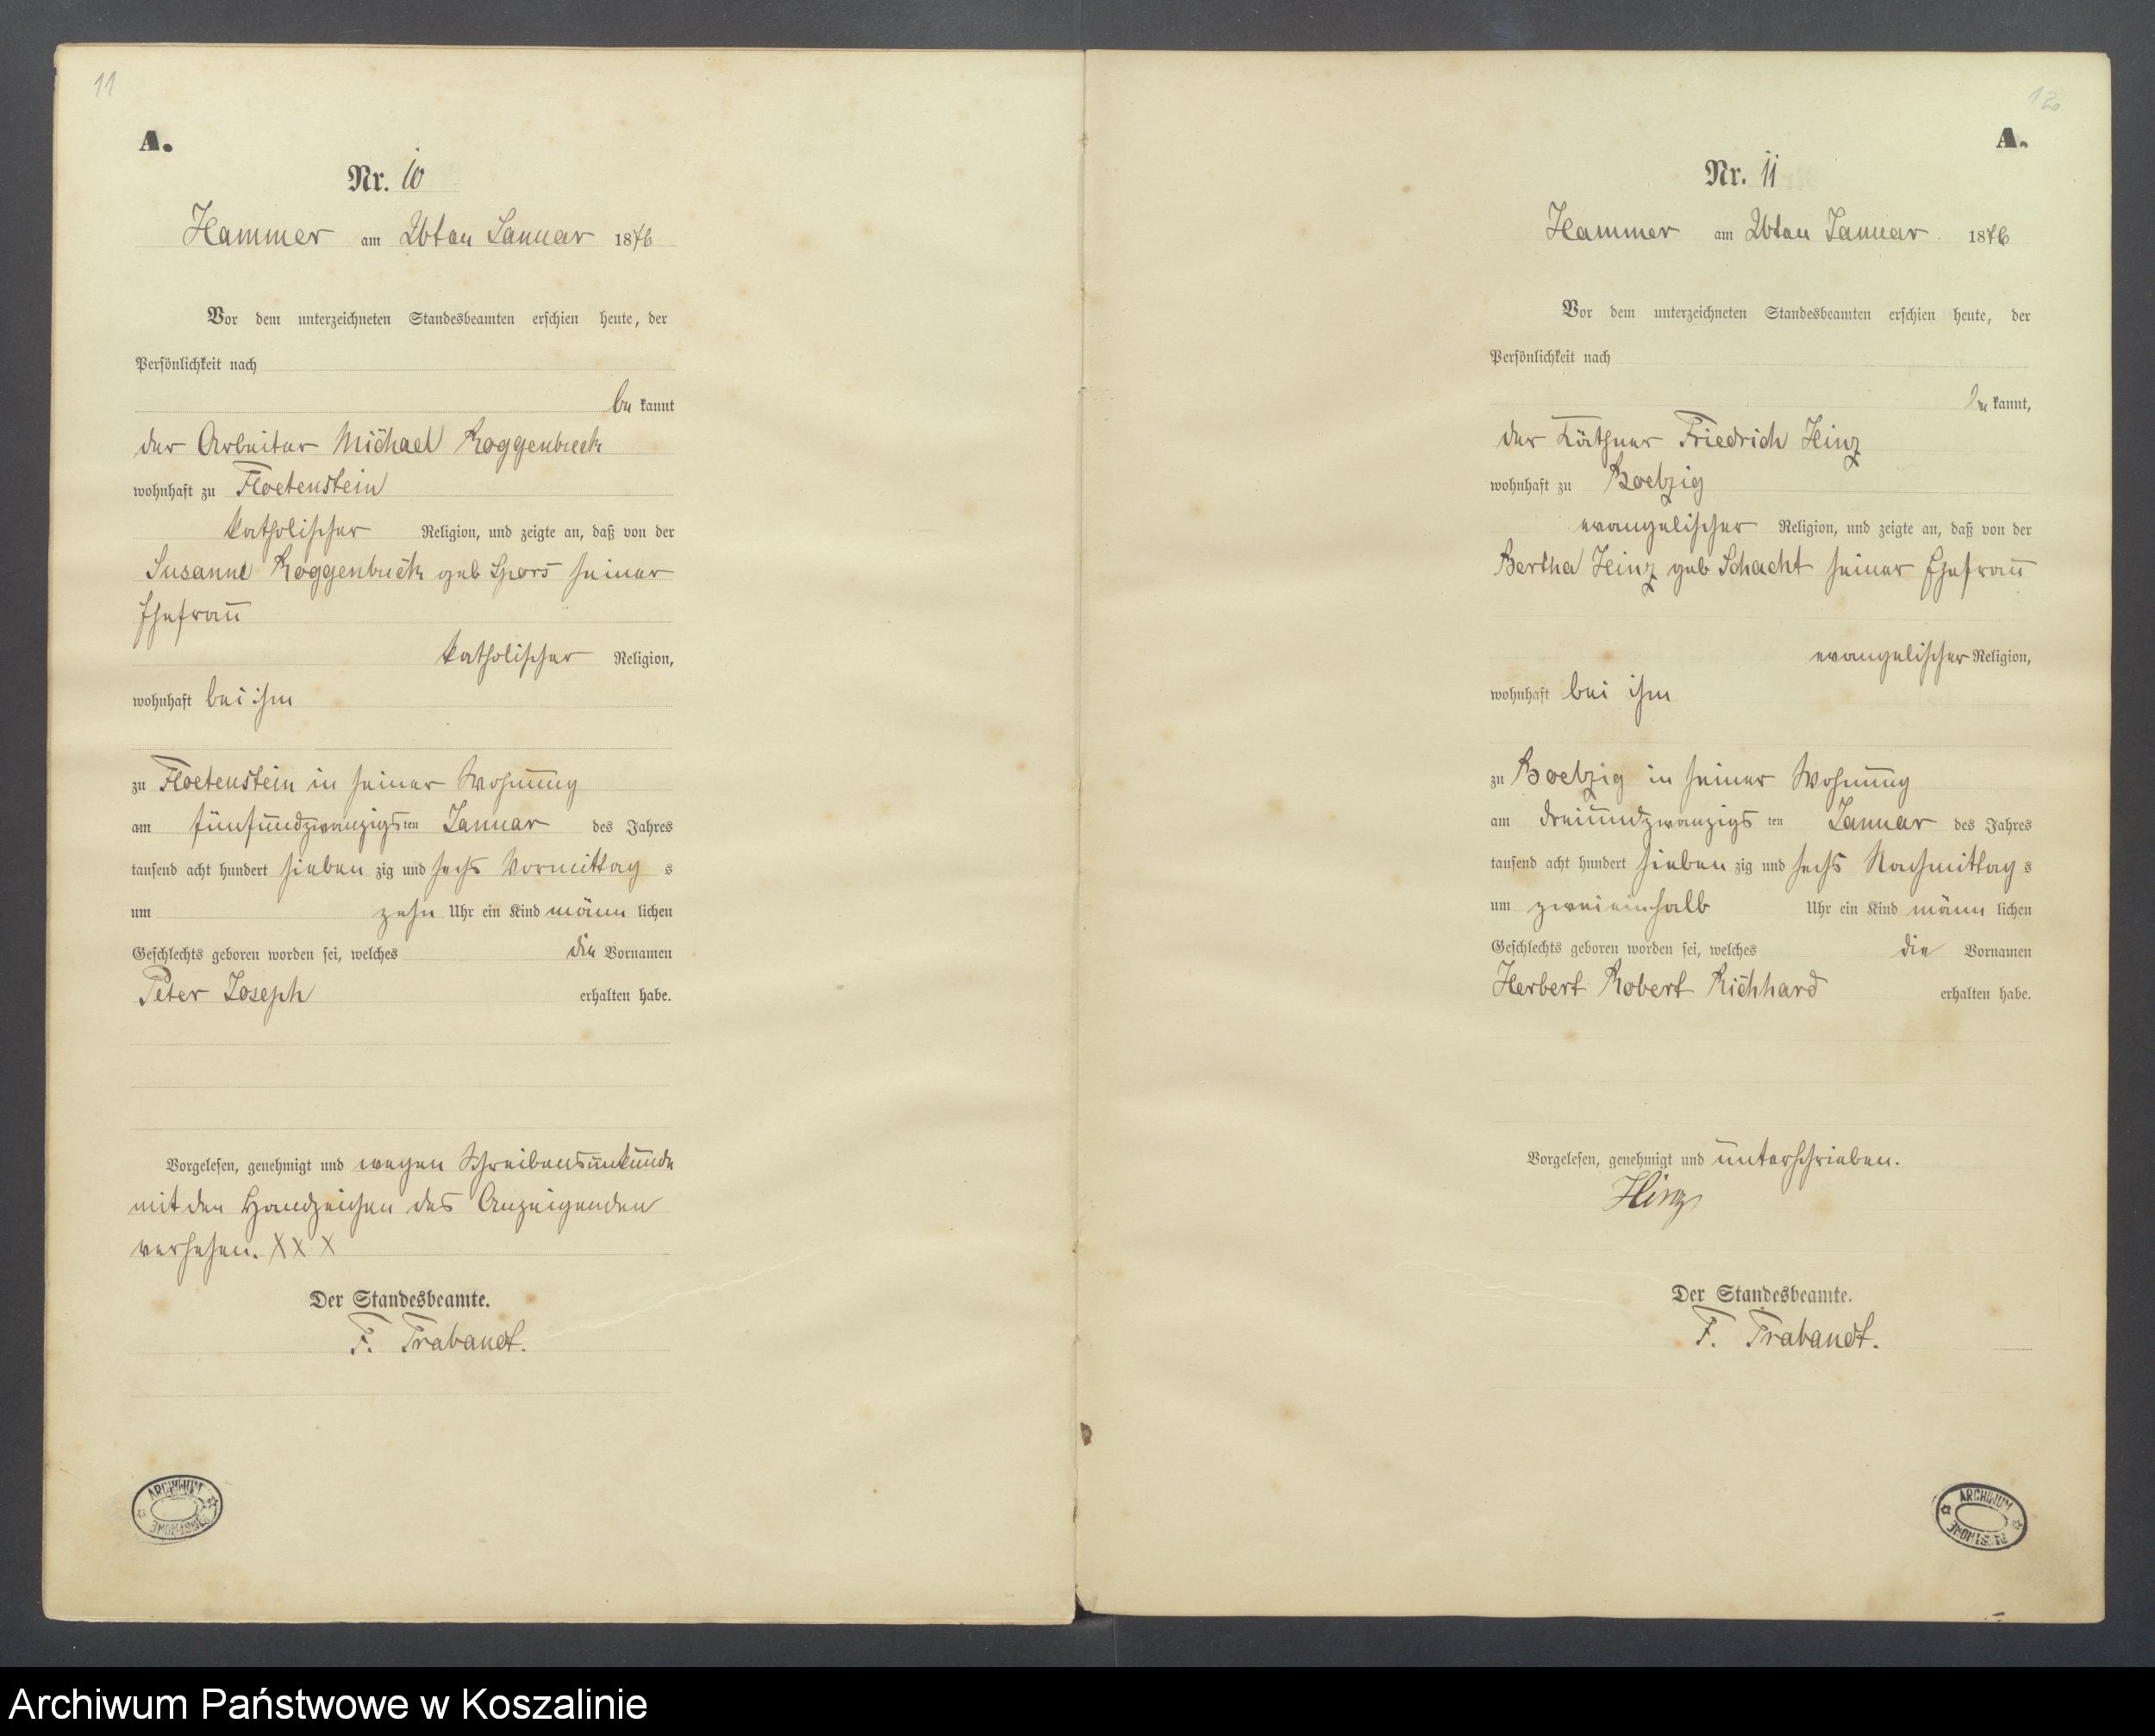 11
A.
Nr. 10
Hammer am 26ten Januar 1876
Vor dem unterzeichneten Standesbeamten erschien heute, der
Persönlichkeit nach
be kannt
der Arbeiter Michael Roggenbuck
wohnhaft zu Floetenstein
katholischer Religion, und zeigte an, daß von der
Susanne Roggenbuck geb Spors seiner
Ehefrau
katholischer Religion,
wohnhaft bei ihm
zu Floetenstein in seiner Wohnung
am fünfundzwanzigs ten Januar des Jahres
tausend acht hundert sieben zig und sechs Vormittag s
um zehn Uhr ein Kind männ lichen
Geschlechts geboren worden sei, welches die Vornamen
Peter Joseph erhalten habe.
Vorgelesen, genehmigt und wegen Schreibensunkunde
mit den Handzeichen des Anzeigenden
versehen. X X X
Der Standesbeamte.
F. Trabandt.
ARCHIWUM
12
A.
Nr. 11
Hammer am 26ten Januar 1876
Vor dem unterzeichneten Standesbeamten erschien heute, der
Persönlichkeit nach
be kannt,
der Käthner Friedrich Hinz
wohnhaft zu Boelzig
evangelischer Religion, und zeigte an, daß von der
Bertha Hinz geb Schacht seiner Ehefrau
evangelischer Religion,
wohnhaft bei ihm
zu Boelzig in seiner Wohnung
am dreiundzwanzigs ten Januar des Jahres
tausend acht hundert sieben zig und sechs Nachmittag s
um zweieinhalb Uhr ein Kind männ lichen
Geschlechts geboren worden sei, welches die Vornamen
Herbert Robert Richhard erhalten habe.
Vorgelesen, genehmigt und unterschrieben.
Hinz
Der Standesbeamte.
F. Trabandt.
ARCHIWUM
Archiwum Państwowe w Koszalinie